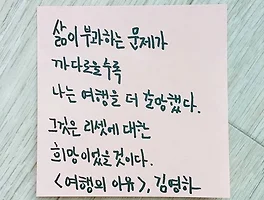 삶이 부과하는 문제가
까다로울수록
나는 여행을 더 갈망했다.
그것은 리셋에 대한
희망이었을것이다.
<여행의 이유>, 김영하